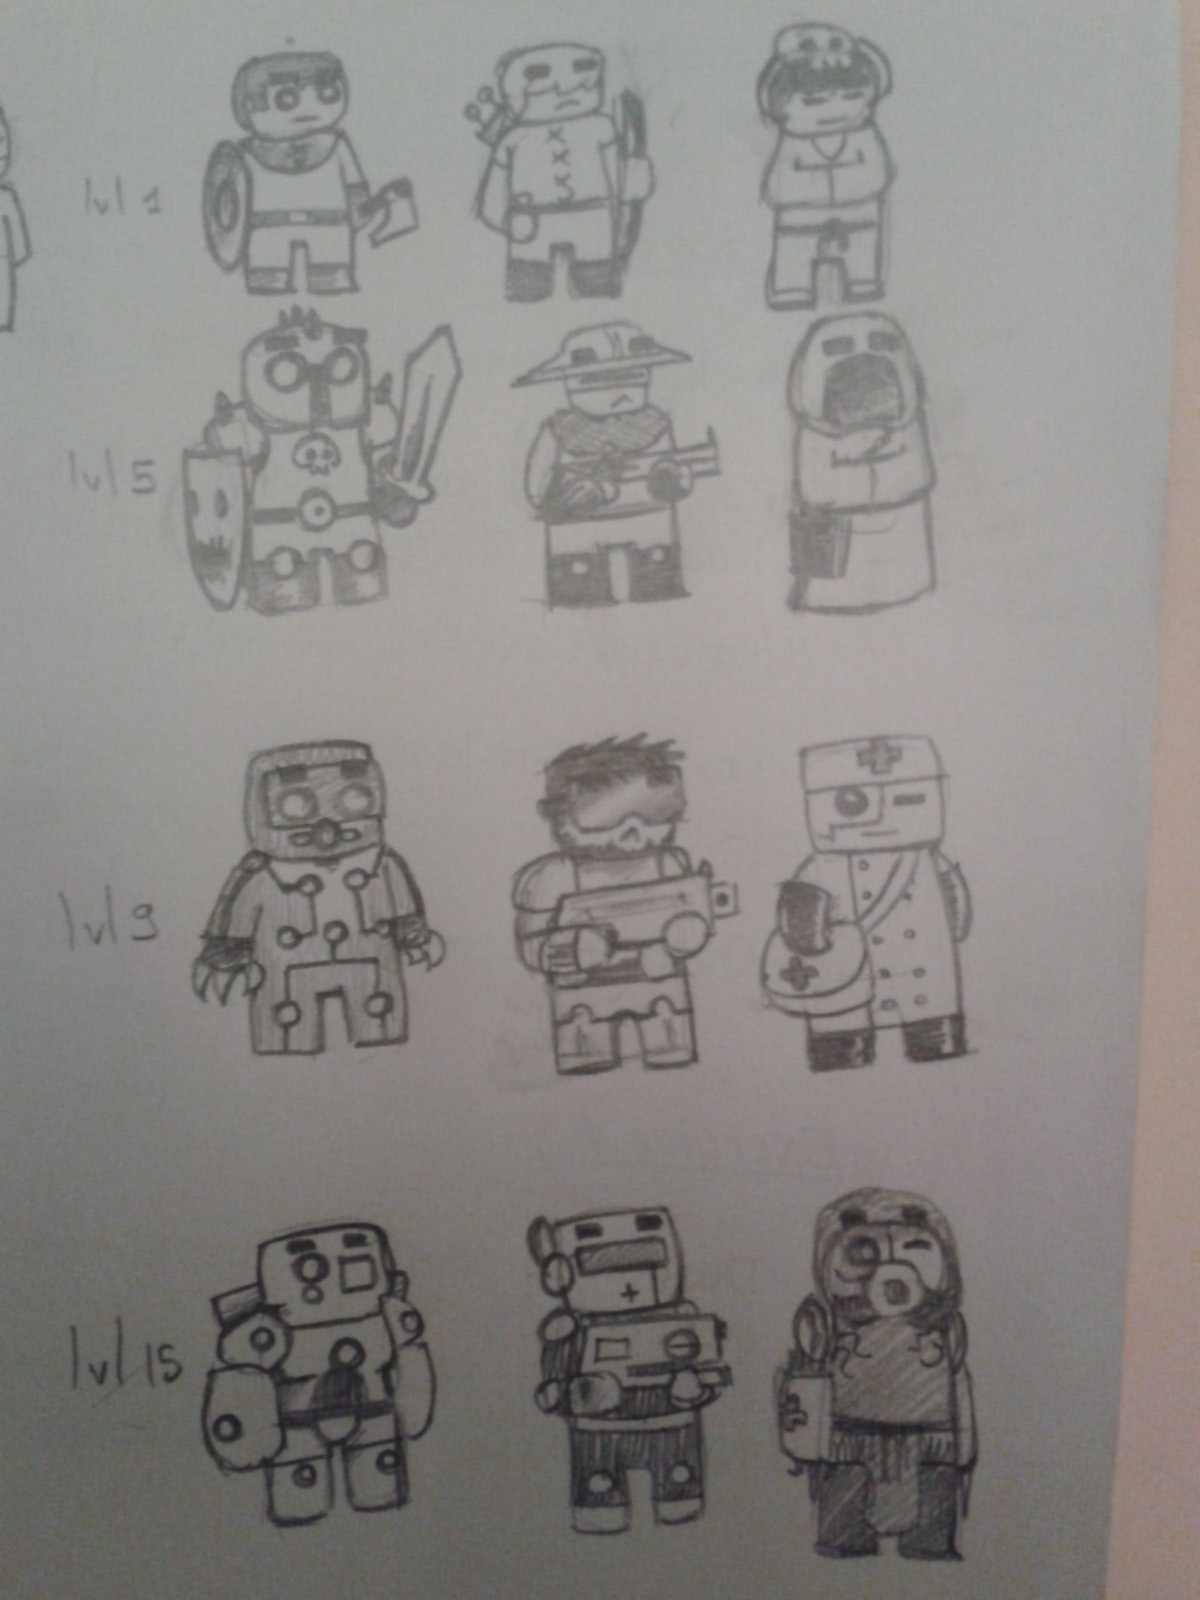 lvl 1
lvl 5
lvl 9
lvl 15